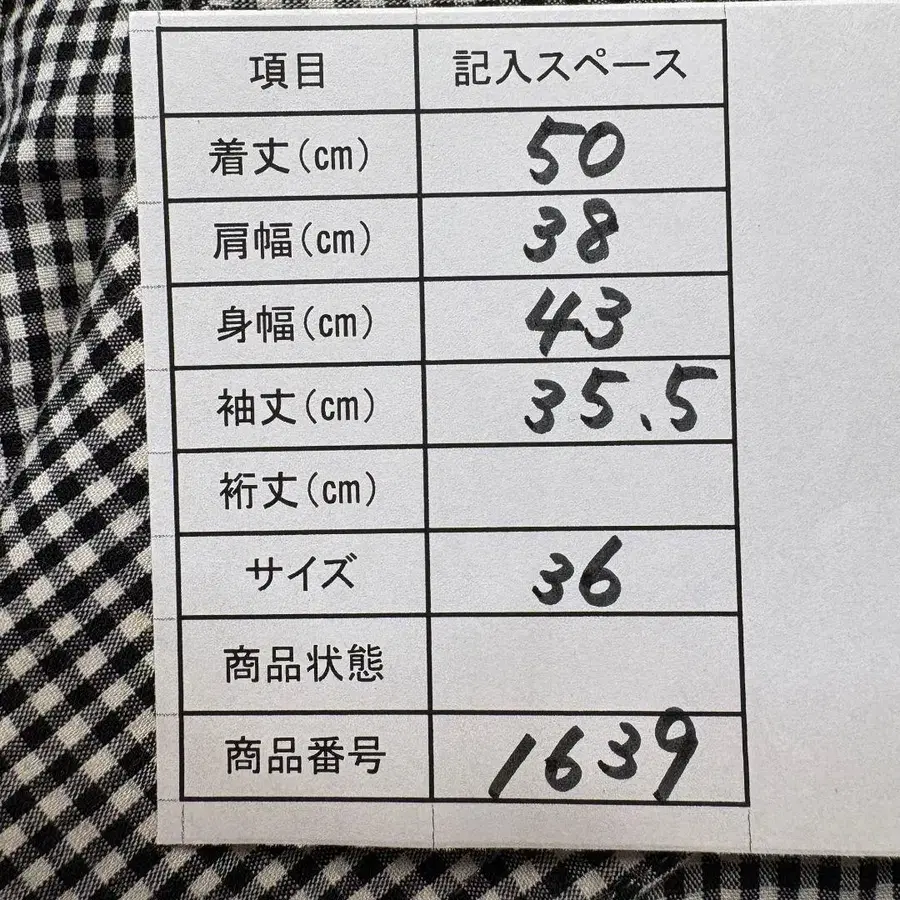 項目 記入スペース
着丈(cm) 50
肩幅(cm) 38
身幅(cm) 43
袖丈(cm) 35.5
裄丈(cm)
サイズ 36
商品状態
商品番号 1639